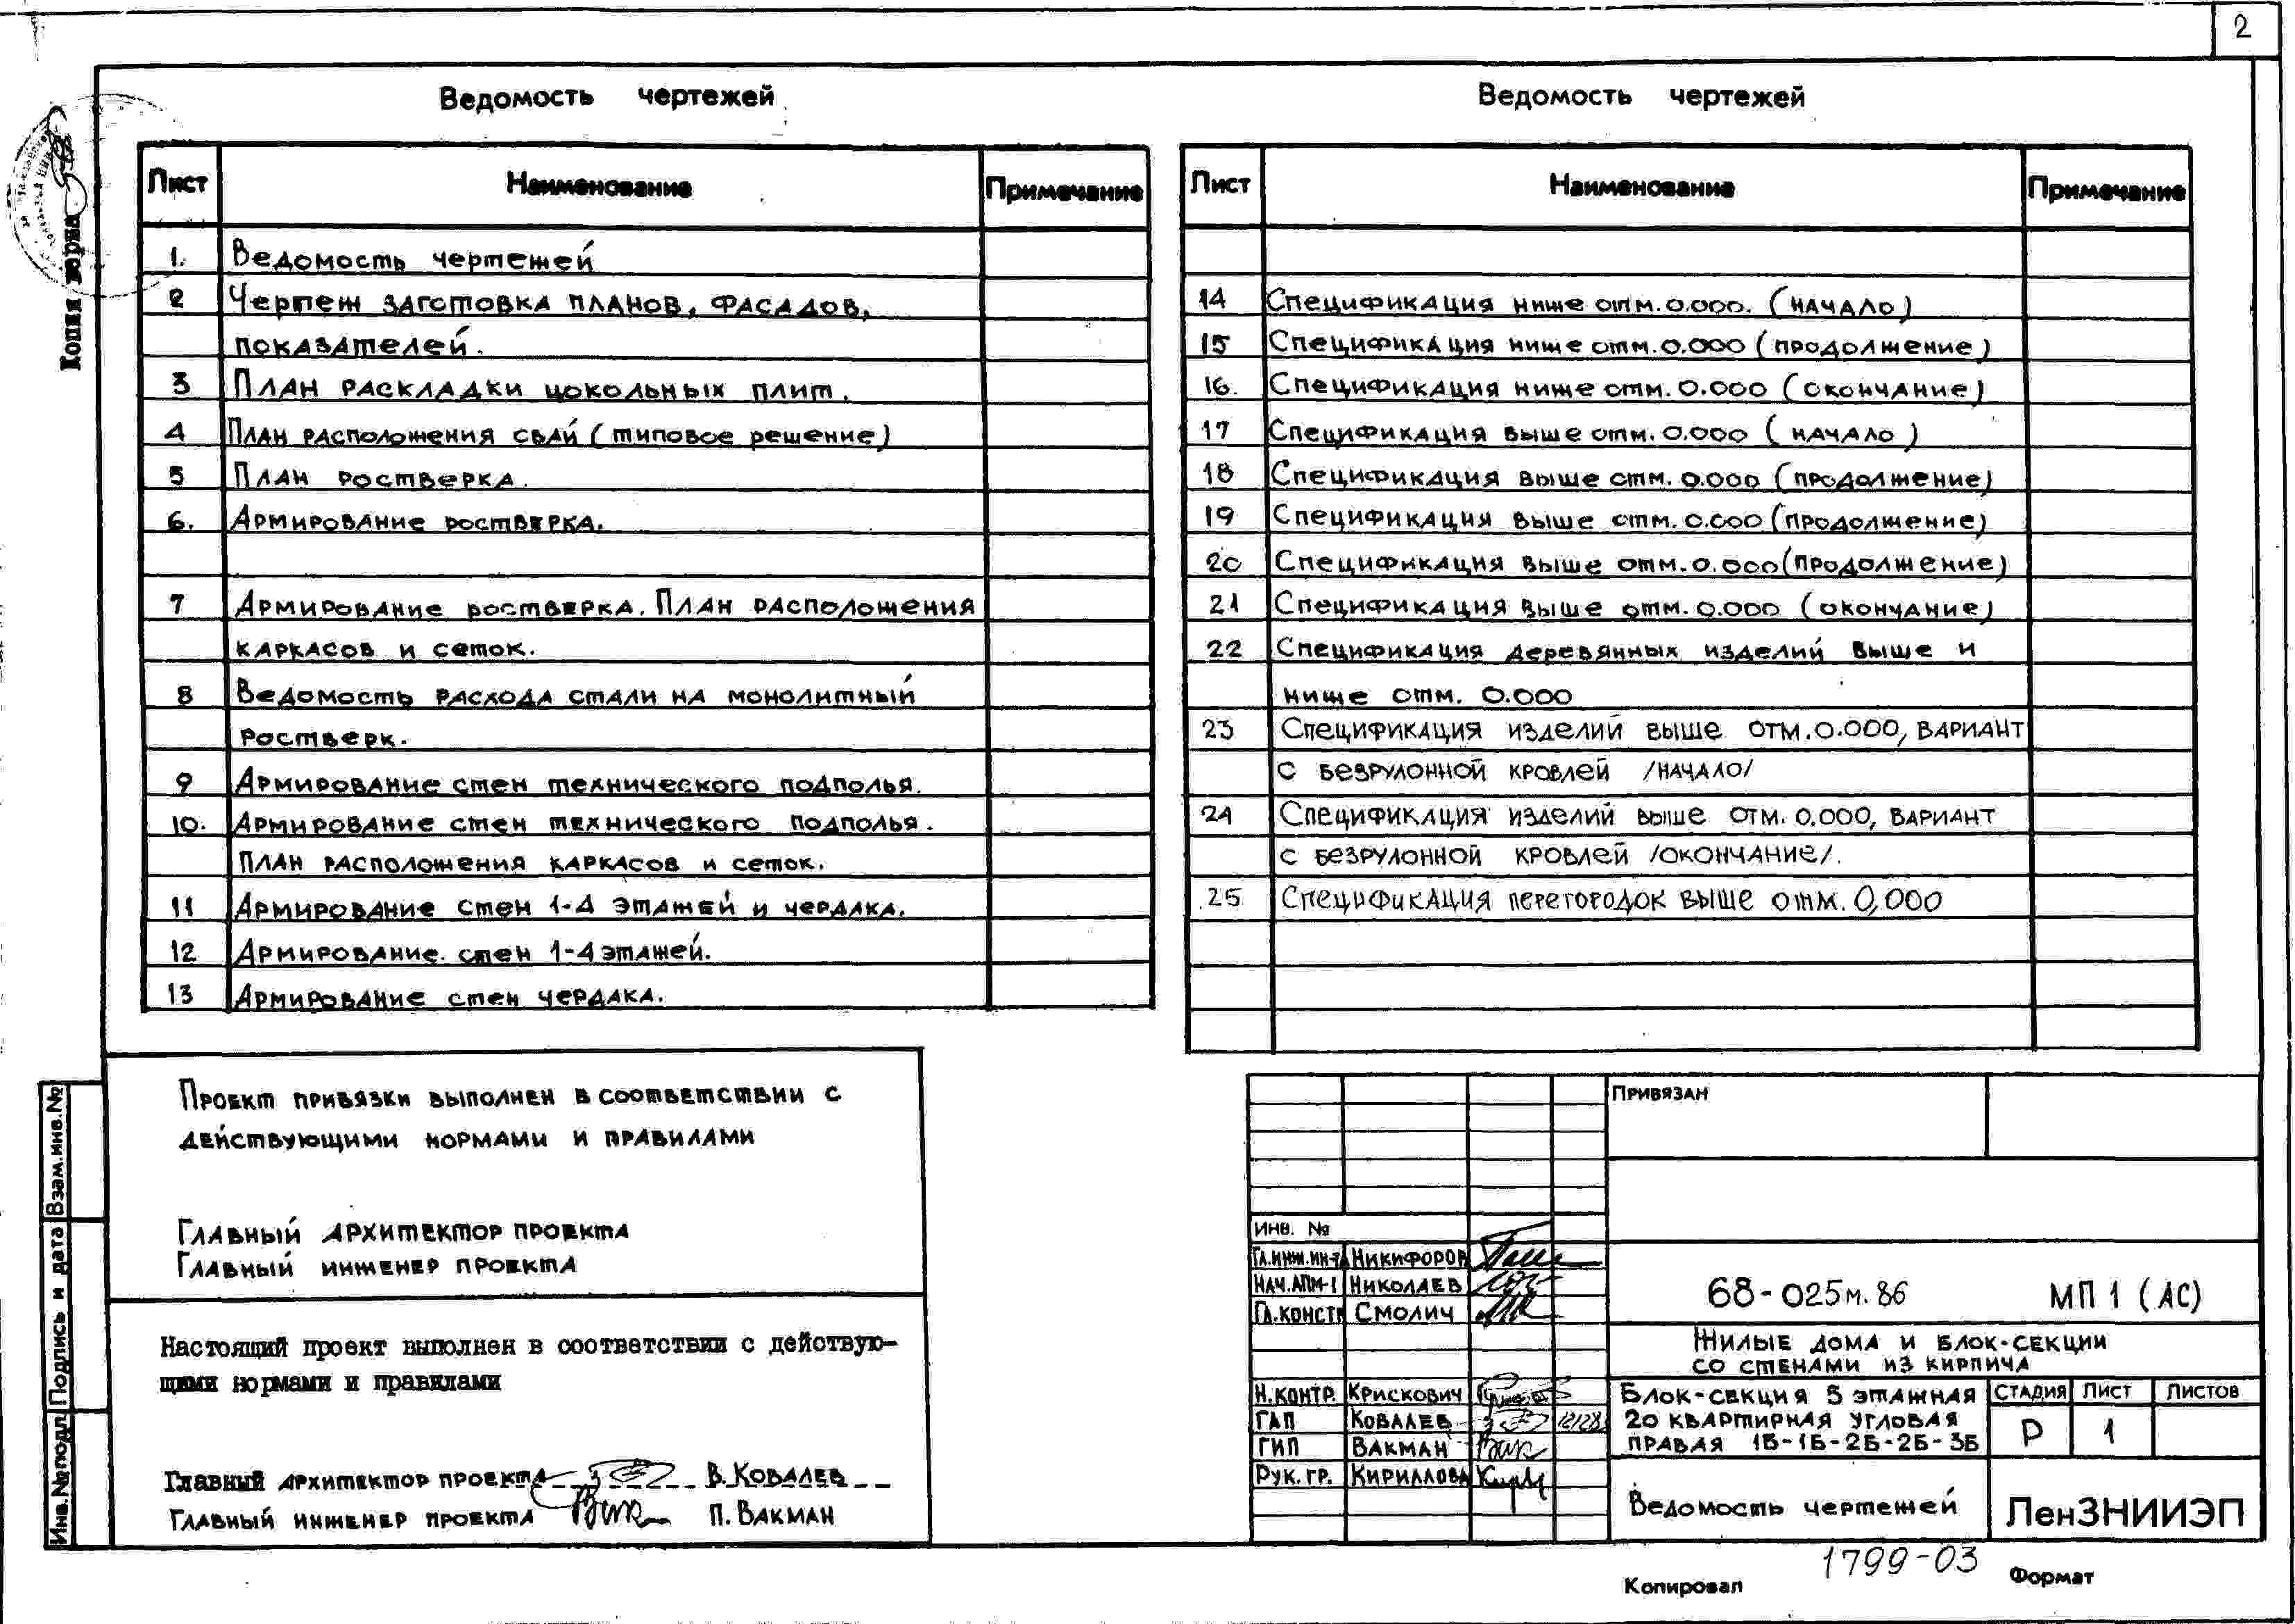 2
Ведомость чертежей
Лист Наименование Примечание
1. Ведомость чертежей
2 Чертеж заготовка планов, фасадов,
показателей.
3 План раскладки цокольных плит.
4 План расположения свай (типовое решение)
5 План ростверка.
6. Армирование ростверка.
7 Армирование ростверка. План расположения
каркасов и сеток.
8 Ведомость расхода стали на монолитный
ростверк.
9 Армирование стен технического подполья.
10. Армирование стен технического подполья.
План расположения каркасов и сеток.
11 Армирование стен 1-4 этажей и чердака.
12 Армирование стен 1-4 этажей.
13 Армирование стен чердака.
Ведомость чертежей
Лист Наименование Примечание
14 Спецификация ниже отм. 0.000. (начало)
15 Спецификация ниже отм. 0.000 (продолжение)
16. Спецификация ниже отм. 0.000 (окончание)
17 Спецификация выше отм. 0.000 (начало)
18 Спецификация выше отм. 0.000 (продолжение)
19 Спецификация выше отм. 0.000 (продолжение)
20 Спецификация выше отм. 0.000 (продолжение)
21 Спецификация выше отм. 0.000 (окончание)
22 Спецификация деревянных изделий выше и
ниже отм. 0.000
23 Спецификация изделий выше отм. 0.000, вариант
с безрулонной кровлей /начало/
24 Спецификация изделий выше отм. 0.000, вариант
с безрулонной кровлей /окончание/.
25 Спецификация перегородок выше отм. 0,000
Копия верна
Проект привязки выполнен в соответствии с
действующими нормами и правилами
Главный архитектор проекта
Главный инженер проекта
Настоящий проект выполнен в соответствии с действую-
щими нормами и правилами
Главный архитектор проекта В. Ковалев
Главный инженер проекта П. Вакман
Взам.инв.№
Подпись и дата
Инв.№подл.
Привязан
Инв. №
Гл.инж.ин-та Никифоров
Нач.АПМ-1 Николаев
Гл.констр Смолич
Н.контр. Крискович
ГАП Ковалев
ГИП Вакман
Рук.гр. Кириллова
68-025м.86 МП 1 (АС)
Жилые дома и блок-секции
со стенами из кирпича
Блок-секция 5 этажная
20 квартирная угловая
правая 1Б-1Б-2Б-2Б-3Б
Стадия Лист Листов
Р 1
Ведомость чертежей
ЛенЗНИИЭП
1799-03
Копировал Формат